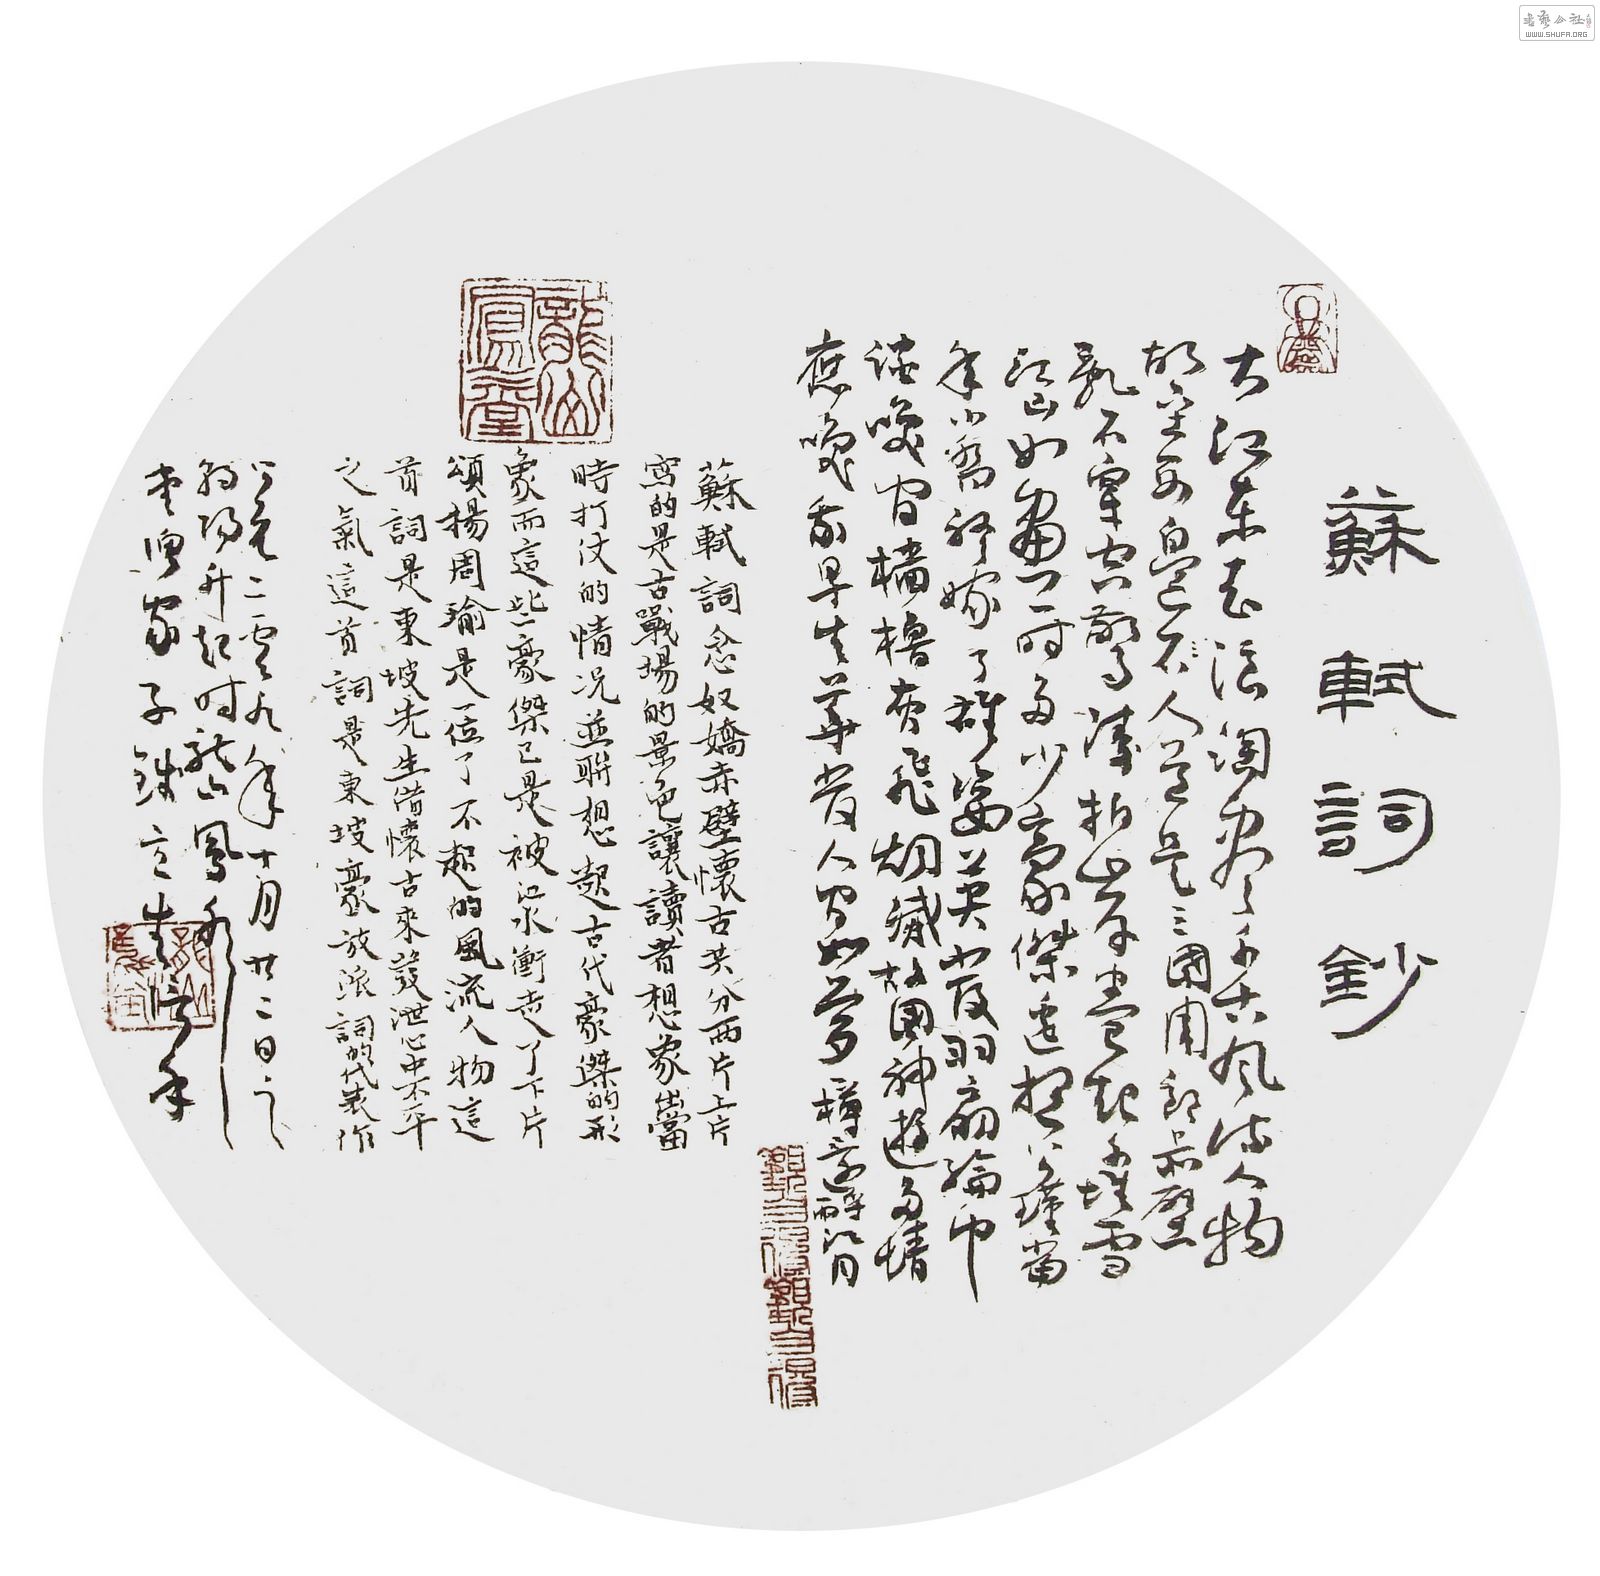 蘇軾詞鈔
大江东去浪淘尽千古风流人物
故垒西邊人道是三國周郎赤壁
亂石穿空驚濤拍岸卷起千堆雪
江山如畫一时多少豪傑遙想公瑾當
年小喬初嫁了雄姿英发羽扇綸巾
談笑间檣櫓灰飛烟滅故國神遊多情
應笑我早生華发人间如夢樽還酹江月
蘇軾詞念奴嬌赤壁懷古共分两片上片
寫的是古戰場的景色讓讀者想象出當
時打仗的情况並聯想起古代豪傑的形
象而這些豪傑已是被江水衝走了下片
頌揚周瑜是一位了不起的風流人物這
首詞是東坡先生借懷古來發泄心中不平
之氣這首詞是東坡豪放派詞的代表作
公元二零零九年十月廿二日之
初阳升起时龙山鳳
堂渔家子
龍山鳳堂
WWW.SHUFA.ORG